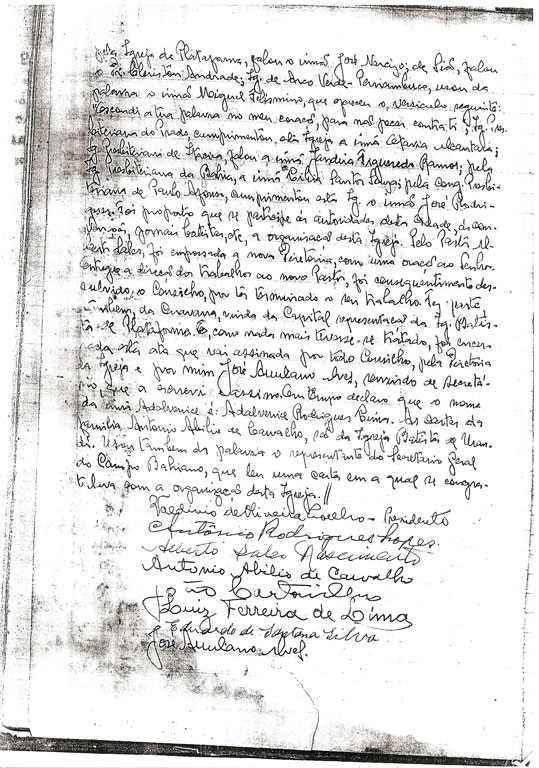 pela Igreja de Plataforma, falou o irmão José Narciso; de Sião, falou
o Dr. Cleriston Andrade; Ig. de Arco Verde-Pernambuco, usou da
palavra o irmão Miguel Felismino, que ofereceu o versículo seguinte:
"Escondi a tua palavra no meu coração, para não pecar contra ti"; Ig. Pres-
biteriana do Prado, cumprimentou esta Igreja a irmã Catarina Alcantara;
Ig. Presbiteriana de Itapoã, falou a irmã Jandira Figueredo Ramos; pela
Ig. Presbiteriana da Bahia, a irmã Santos Souza; pela Cong. Presbi-
teriana de Paulo Afonso, cumprimentou esta Ig. o irmão José Rodri-
gues. Foi proposto que se participe às autoridades desta cidade, as con-
jornais batistas, etc, a organização desta Igreja. Pelo Pastor Al-
berto Sales, foi empossada a nova Diretoria, com uma oração ao Senhor.
Entregue a direção dos trabalhos ao novo Pastor, foi consequentimente des-
solvido o Concílio, por ter terminado o seu trabalho. Fez parte
tambem, da Caravana, vinda da Capital representação da Ig. Batis-
ta de Plataforma. E, como nada mais tivesse-se tratado, foi encer-
rada esta ata que vai assinada por todo Concílio, pela Diretoria
da Igreja e por mim José Alves, servindo de Secretá-
rio que a escrevi e assino. Em tempo declaro que o nome
da irmã Adalvenice é: Adalvenice Rodrigues Lima. As cartas da
família Antonio Abilio de Carvalho, são da Igreja Batista de Uran-
di. Usou tambem da palavra o representante do Secretário Geral
do Campo Bahiano, que leu uma carta em a qual se congra-
tulava com a organização desta Igreja. //
Valdívio de Oliveira Coelho - Presidente
Antônio Rodrigues Lopes.
Alberto Sales Nascimento
Antonio Abilio de Carvalho
João
Luiz Ferreira de Lima
Eduardo de Santana Silva
José Alves.